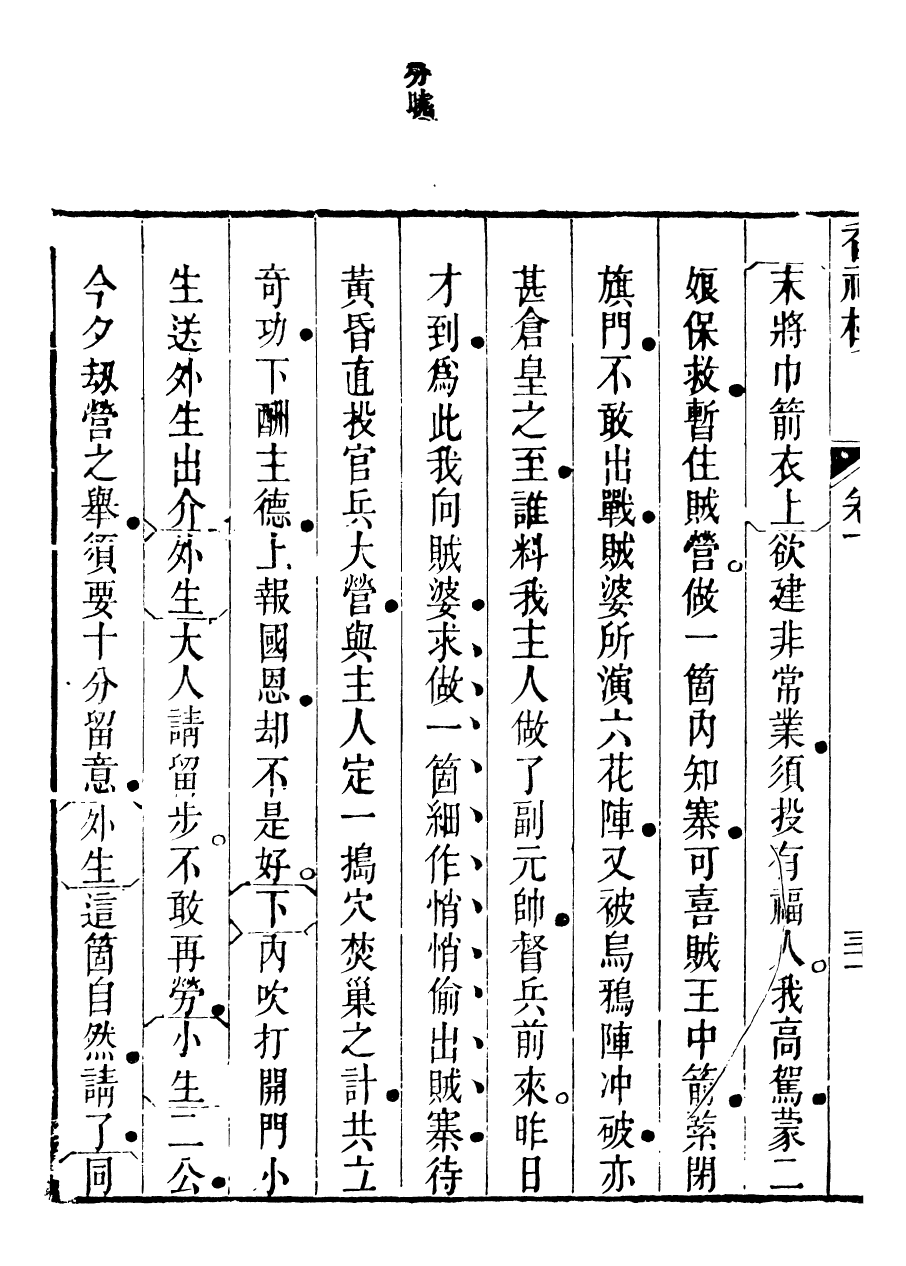 分曉
末將巾箭衣上欲建非常業須投有福人我高駕蒙二
娘保救暫住賊營做一箇內知寨可喜賊王中箭紮閉
旗門不敢出戰賊婆所演六花陣又被烏鴉陣冲破亦
甚倉皇之至誰料我主人做了副元帥督兵前來昨日
才到爲此我向賊婆求做一箇細作悄悄偷出賊寨待
黃昏直投官兵大營與主人定一搗穴焚巢之計共立
奇功下酬主德上報國恩却不是好下內吹打開門小
生送外生出介外生大人請留步不敢再勞小生二公
今夕刼營之舉須要十分留意外生這箇自然請了同